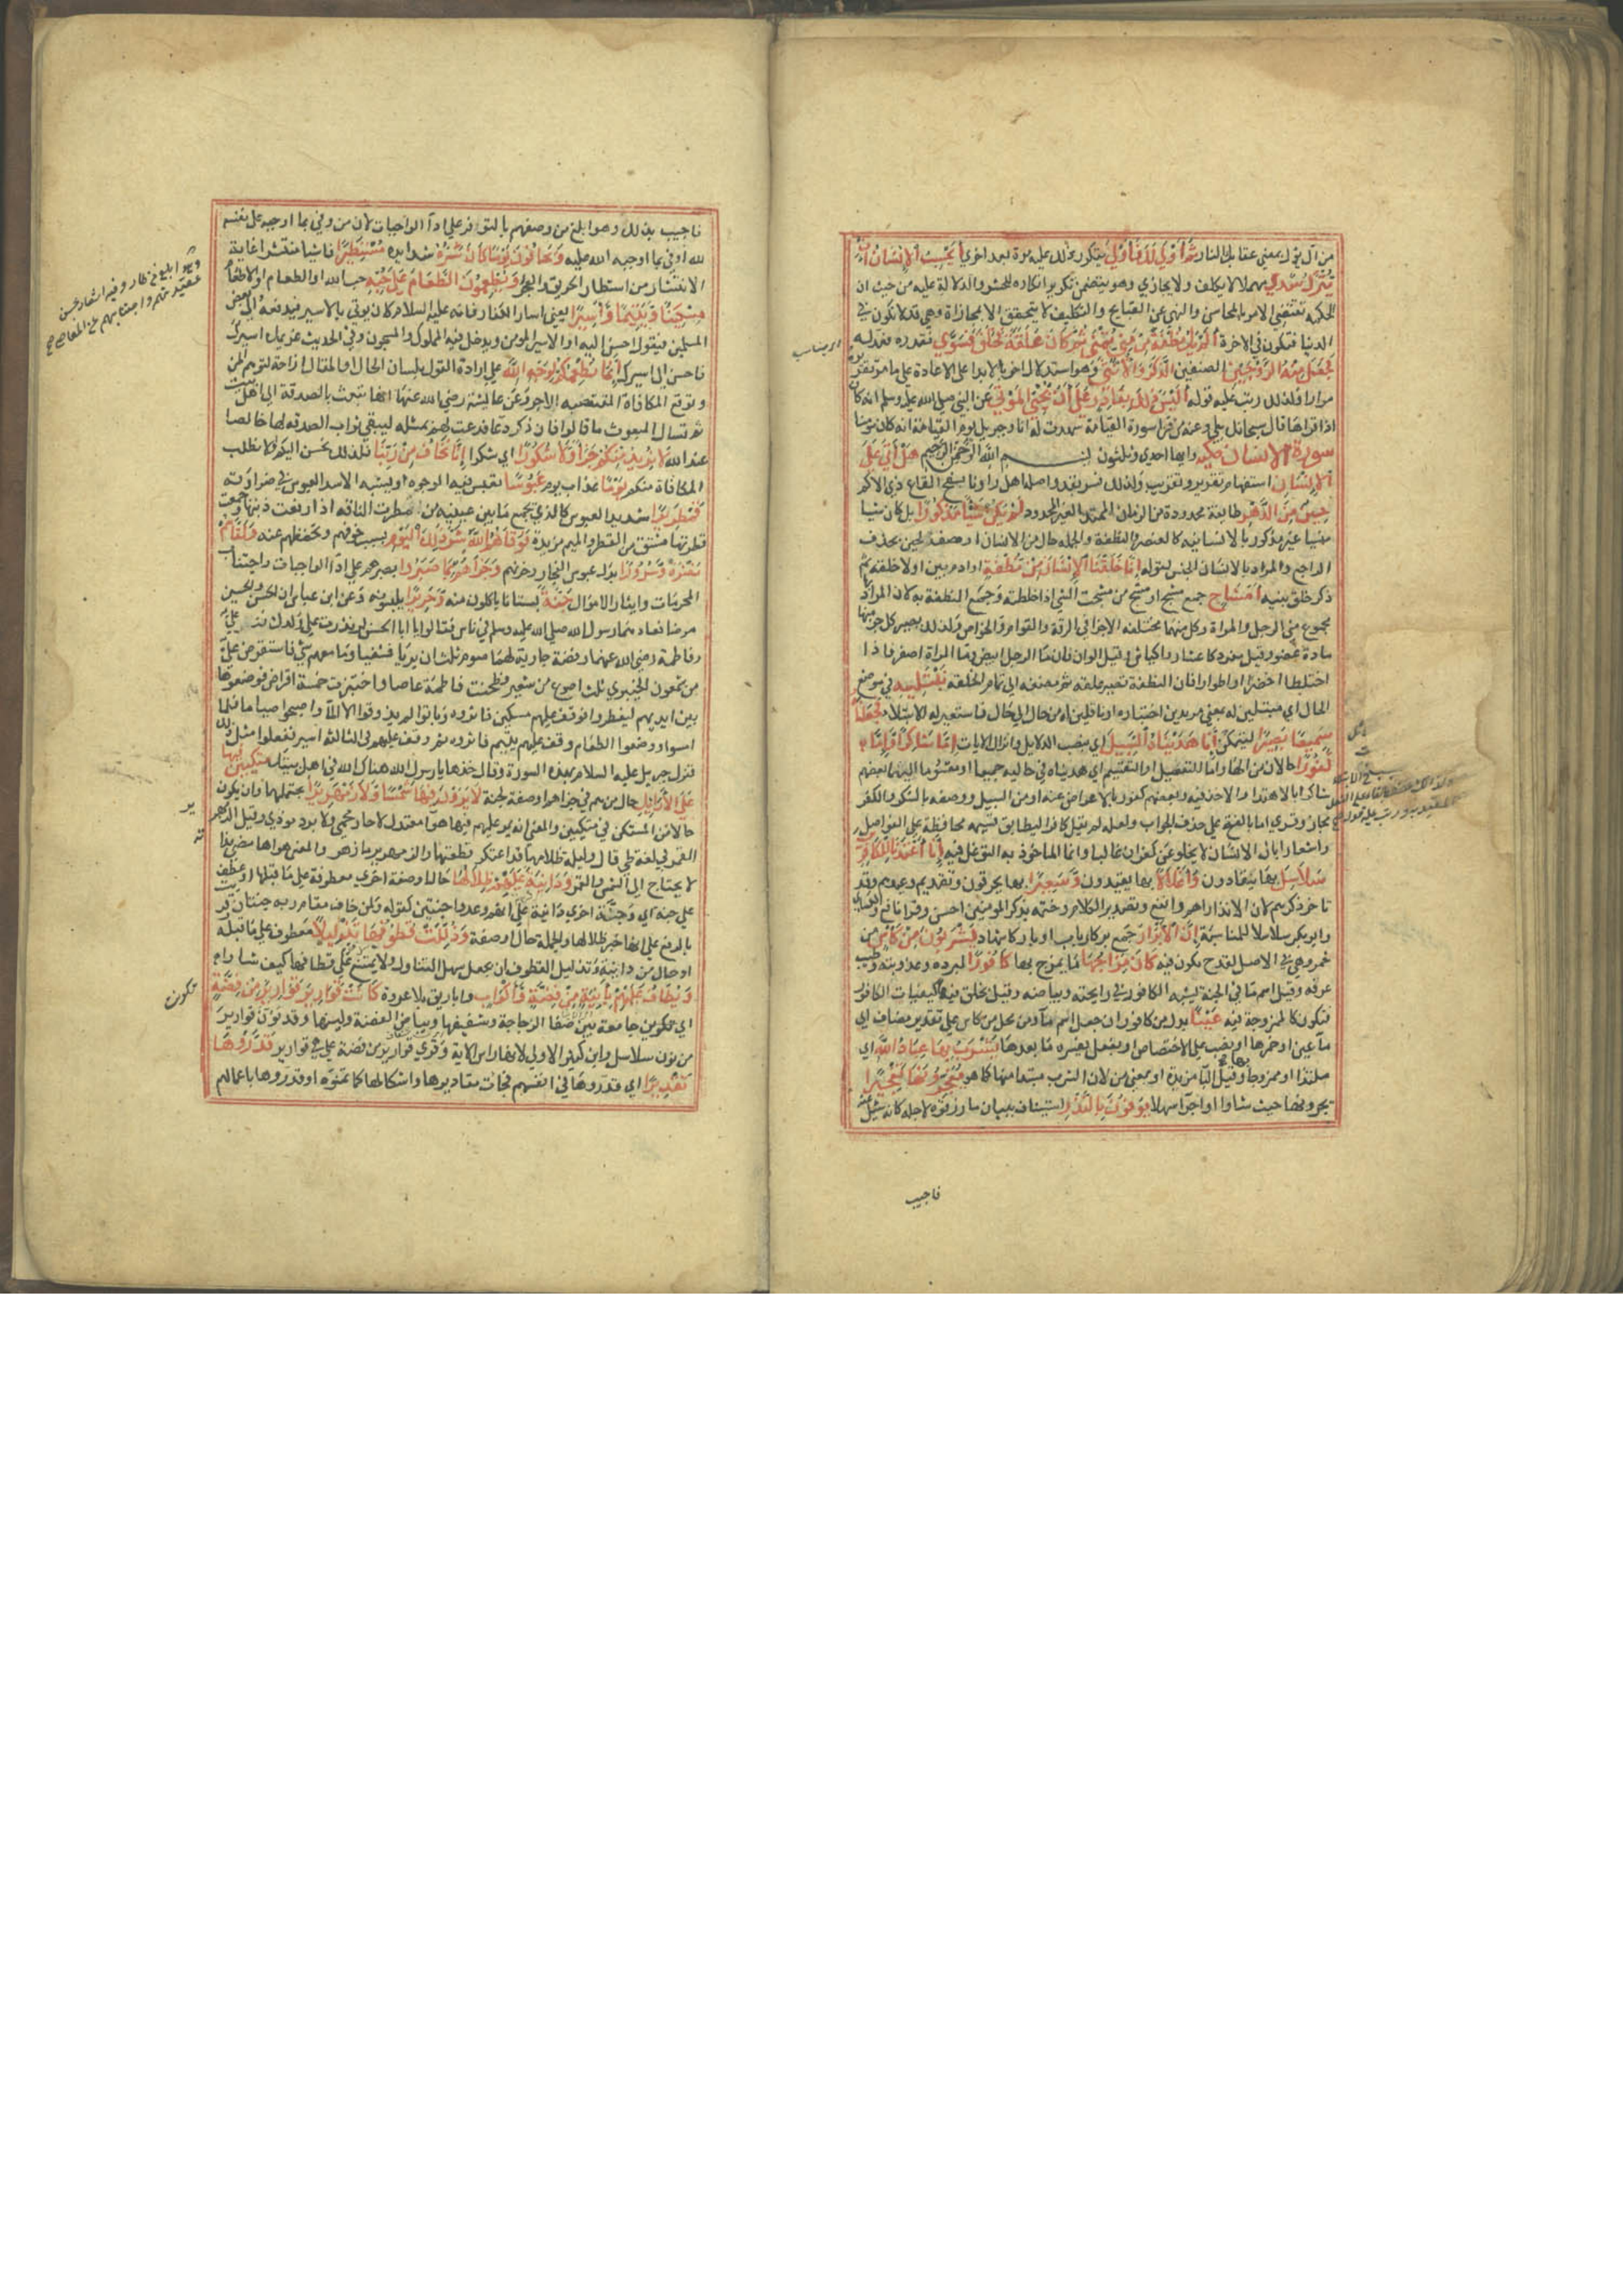 من آل يؤل بمعنى عقابه النار ثم أولى لك فأولى يتكرر ذلك عليه مرة بعد اخرى أيحسب الإنسان أن
يترك سدى مهملا لا يكلف ولا يجازي وهو يتضمن تكرير انكاره للحشر والدلالة عليه من حيث ان
الحكمة تقتضي الامر بالمحاسن والنهي عن القبايح والتكليف لا يتحقق الا بمجازاة وهي قد لا تكون في
الدنيا فتكون في الاخرة ألم يك نطفة من مني يمنى ثم كان علقة فخلق فسوى فقدره فعدله
فجعل منه الزوجين الصنفين الذكر والأنثى وهو استدلال اخر بالابدا على الاعادة على ما مر تقريره
مرارا ولذلك رتب عليه قوله أليس ذلك بقادر على أن يحيي الموتى عن النبي صلى الله عليه وسلم انه كان
اذا قراها قال سبحانك بلى وعنه من قرا سورة القيامة شهدت له انا وجبريل يوم القيامة انه كان مؤمنا
سورة الإنسان مكية وايها احدى وثلثون بسم الله الرحمن الرحيم هل أتى على
الإنسان استفهام تقرير وتقريب ولذلك فسر بقد واصله اهل راونا بسفح القاع ذي الاكم
حين من الدهر طايفة محدودة من الزمان الممتد الغير المحدود لم يكن شيئا مذكورا بل كان شيا
منسيا غير مذكور بالانسانية كالعنصر والنطفة والجملة حال من الانسان او وصف لحين بحذف
الراجع والمراد بالانسان الجنس لقوله إنا خلقنا الإنسان من نطفة او ادم بين اولا خلقه ثم
ذكر خلق بنيه أمشاج جمع مشج او مشج من مشجت الشي اذا خلطته وجمع النطفة به لان المراد بها
مجموع مني الرجل والمراة وكل منهما مختلفة الاجزا في الرقة والقوام والخواص ولذلك يصير كل جزء منهما
مادة عضو وقيل مفرد كاعشار واكياش وقيل الوان فان ما الرجل ابيض وما المراة اصفر فاذا
اختلطا اخضرا او اطوار فان النطفة تصير علقة ثم مضغة الى تمام الخلقة نبتليه في موضع
الحال اي مبتلين له بمعنى مريدين اختباره او ناقلين له من حال الى حال فاستعير له الابتلا فجعلناه
سميعا بصيرا ليتمكن إنا هديناه السبيل اي بنصب الدلايل وانزال الايات إما شاكرا وإما
كفورا حالان من الها واما للتفصيل او التقسيم اي هديناه في حاليه جميعا او مقسوما اليهما بعضهم
شاكر بالاهتدا والاخذ فيه وبعضهم كفور بالاعراض عنه او من السبيل ووصفه بالشكر والكفر
مجاز وقري اما بالفتح على حذف الجواب ولعله لم يقل كافرا ليطابق قسيمه محافظة على الفواصل
واشعارا بان الانسان لا يخلو عن كفران غالبا وانما الماخوذ به التوغل فيه إنا أعتدنا للكافرين
سلاسل بها يقادون وأغلالا بها يقيدون وسعيرا بها يحرقون وتقديم وعيدهم وقد
تاخر ذكرهم لان الانذار اهم وانفع وتصدير الكلام وختمه بذكر المومنين احسن وقرا نافع والكسائي
وابو بكر سلاسلا للمناسبة إن الأبرار جمع بر كارباب او بار كاشهاد يشربون من كأس من
خمر وهي في الاصل لقدح تكون فيه كان مزاجها ما يمزج بها كافورا لبرده وعذوبته وطيب
عرفه وقيل اسم ما في الجنة يشبه الكافور في رايحته وبياضه وقيل يخلق فيها كيفيات الكافور
فتكون كالممزوجة فيه عينا بدل من كافورا ان جعل اسم ماء ومن محل من كاس على تقدير مضاف اي
ماء عين او خمرها او نصب على الاختصاص او بفعل يفسره ما بعدها يشرب بها عباد الله اي
ملتذا او ممزوجا بها وقيل البا مزيدة او بمعنى من لان الشرب مبتدا منها كما هو يفجرونها تفجيرا
يجرونها حيث شاوا اجرا سهلا يوفون بالنذر استيناف ببيان ما رزقوه لاجله كانه سئل عنه
فاجيب
فاجيب بذلك وهو ابلغ من وصفهم بالتوفر على ادا الواجبات لان من وفى بما اوجبه على نفسه
لله اوفى بما اوجبه الله عليه ويخافون يوما كان شره شدايده مستطيرا فاشيا منتشرا غاية
الانتشار من استطار الحريق والفجر ويطعمون الطعام على حبه حب الله او الطعام او الاطعام
مسكينا ويتيما وأسيرا يعني اسارى الكفار فانه عليه السلام كان يوتى بالاسير فيدفعه الى بعض
المسلمين فيقول احسن اليه او الاسير المومن ويدخل فيه المملوك والمسجون وفي الحديث غريمك اسيرك
فاحسن الى اسيرك إنما نطعمكم لوجه الله على ارادة القول بلسان الحال او المقال ازاحة لتوهم المن
وتوقع المكافاة المنقصة للاجر وعن عايشة رضي الله عنها انها كانت تبعث بالصدقة الى اهل بيت
ثم تسال المبعوث ما قالوا فان ذكر دعا دعت لهم بمثله ليبقى ثواب الصدقة لها خالصا
عند الله لا نريد منكم جزاء ولا شكورا اي شكرا إنا نخاف من ربنا فلذلك نحسن اليكم ولا نطلب
المكافاة منكم يوما عذاب يوم عبوسا تعبس فيه الوجوه او يشبه الاسد العبوس في ضراوته
قمطريرا شديد العبوس كالذي يجمع ما بين عينيه من اقمطرت الناقة اذا رفعت ذنبها وجمعت
قطريها مشتق من القطر والميم مزيدة فوقاهم الله شر ذلك اليوم بسبب خوفهم وتحفظهم عنه ولقاهم
نضرة وسرورا بدل عبوس الفجار وحزنهم وجزاهم بما صبروا بصبرهم على ادا الواجبات واجتناب
المحرمات وايثار الاموال جنة بستانا ياكلون منه وحريرا يلبسونه وعن ابن عباس ان الحسن والحسين
مرضا فعادهما رسول الله صلى الله عليه وسلم في ناس فقالوا يا ابا الحسن لو نذرت على ولدك فنذر علي
وفاطمة رضي الله عنهما وفضة جارية لهما صوم ثلث ان بريا فشفيا وما معهم شي فاستقرض علي
من شمعون الخيبري ثلث اصوع من شعير فطحنت فاطمة صاعا واختبزت خمسة اقراص فوضعوها
بين ايديهم ليفطروا فوقف عليهم مسكين فاثروه وباتوا لم يذوقوا الا الماء واصبحوا صياما فلما
امسوا ووضعوا الطعام وقف عليهم يتيم فاثروه ثم وقف عليهم في الثالثة اسير ففعلوا مثل ذلك
فنزل جبريل عليه السلام بهذه السورة وقال خذها يا رسول الله هناك الله في اهل بيتك متكئين فيها
على الأرائك حال من هم في جزاهم او صفة لجنة لا يرون فيها شمسا ولا زمهريرا يحتملهما وان يكون
حالا من المستكن في متكيين والمعنى انه يمر عليهم فيها هوا معتدل لا حار محمي ولا بارد موذي وقيل الزمهرير
القمر في لغة طي قال وليلة ظلامها قد اعتكر قطعتها والزمهرير ما زهر والمعنى هواها مضي بذاته
لا يحتاج الى شمس وقمر ودانية عليهم ظلالها حال او صفة اخرى معطوفة على ما قبلها او عطف
على جنة اي وجنة اخرى دانية على انهم وعدوا جنتين كقوله ولمن خاف مقام ربه جنتان وقريت
بالرفع على انها خبر ظلالها والجملة حال او صفة وذللت قطوفها تذليلا معطوف على ما قبله
او حال من دانية وتذليل القطوف ان يجعل سهل التناول ولا يمتنع على قطافها كيف شاوا
ويطاف عليهم بآنية من فضة وأكواب واباريق بلا عروة كانت قوارير قوارير من فضة
اي تكونت جامعة بين صفا الزجاجة وشفيفها وبياض الفضة ولينها وقد نون قوارير
من نون سلاسل وابن كثير الاولى لانها راس الاية وقري قوارير من فضة على هي قوارير قدروها
تقديرا اي قدروها في انفسهم فجات مقاديرها واشكالها كما تمنوه او قدروها باعمالهم
وهو ابلغ من طار وفيه اشعار بحسن
عقيدتهم واجتنابهم عن المعاصي صح
تكون